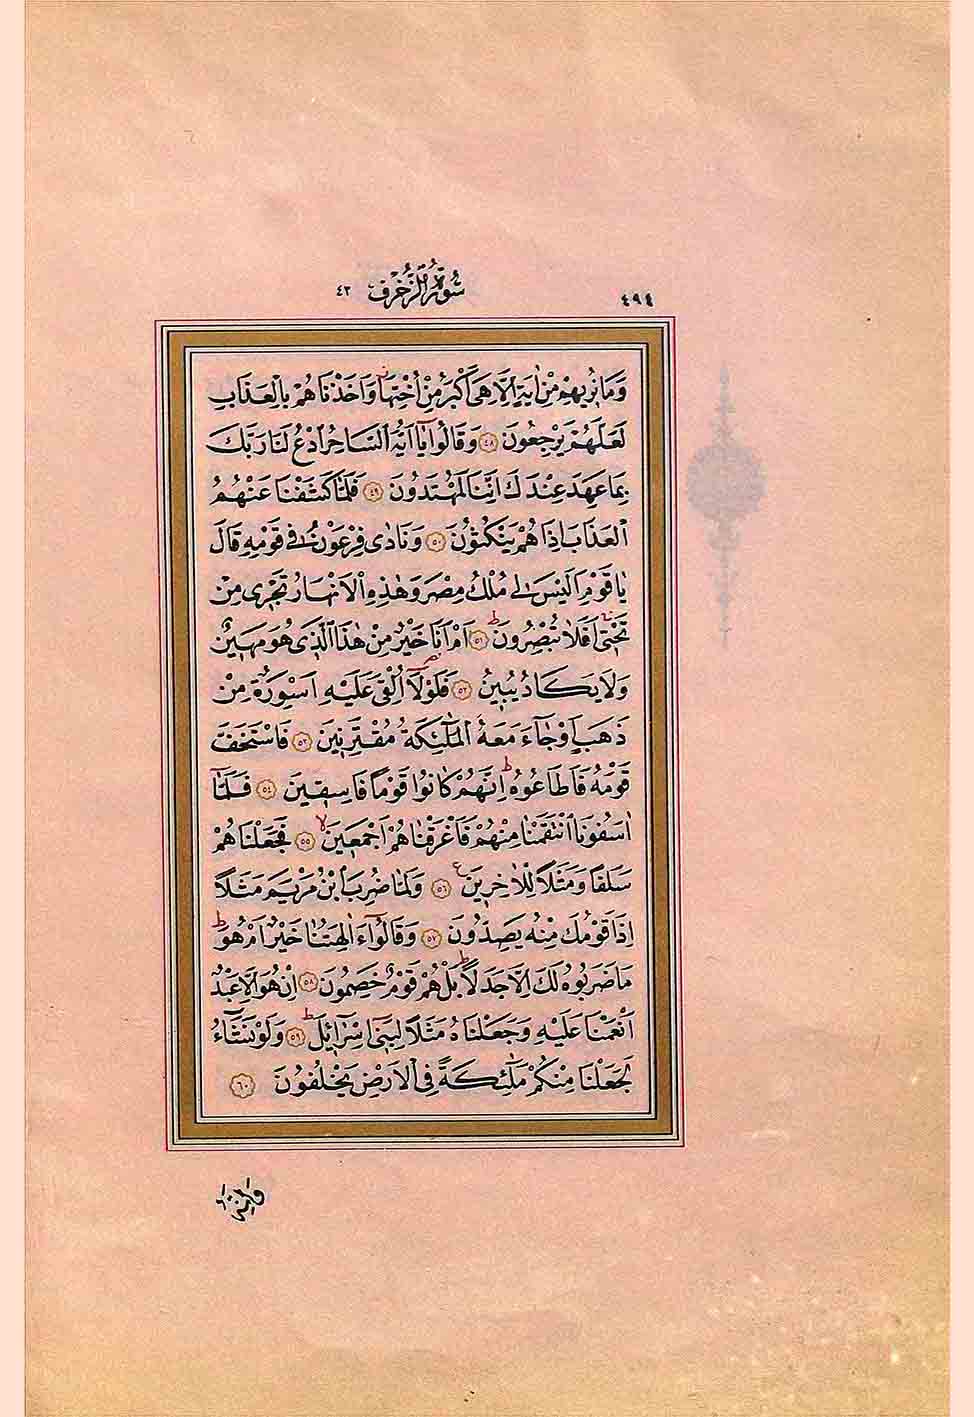 ٤٩٤ سُورَةُ الزُّخْرُفِ ٤٣
وَمَا نُرِيهِمْ مِنْ اٰيَةٍ اِلَّا هِيَ اَكْبَرُ مِنْ اُخْتِهَاۘ وَاَخَذْنَاهُمْ بِالْعَذَابِ
لَعَلَّهُمْ يَرْجِعُونَ ﴿٤٨﴾ وَقَالُوا يَٓا اَيُّهَ السَّاحِرُ ادْعُ لَنَا رَبَّكَ
بِمَا عَهِدَ عِنْدَكَ اِنَّنَا لَمُهْتَدُونَ ﴿٤٩﴾ فَلَمَّا كَشَفْنَا عَنْهُمُ
الْعَذَابَ اِذَا هُمْ يَنْكُثُونَ ﴿٥٠﴾ وَنَادٰى فِرْعَوْنُ فِي قَوْمِهِ قَالَ
يَا قَوْمِ اَلَيْسَ لِي مُلْكُ مِصْرَ وَهٰذِهِ الْاَنْهَارُ تَجْرِي مِنْ
تَحْتِي اَفَلَا تُبْصِرُونَۜ ﴿٥١﴾ اَمْ اَنَا خَيْرٌ مِنْ هٰذَا الَّذِي هُوَ مَهِينٌ
وَلَا يَكَادُ يُبِينُ ﴿٥٢﴾ فَلَوْلَٓا اُلْقِيَ عَلَيْهِ اَسْوِرَةٌ مِنْ
ذَهَبٍ اَوْ جَٓاءَ مَعَهُ الْمَلٰٓئِكَةُ مُقْتَرِنِينَ ﴿٥٣﴾ فَاسْتَخَفَّ
قَوْمَهُ فَاَطَاعُوهُۜ اِنَّهُمْ كَانُوا قَوْمًا فَاسِقِينَ ﴿٥٤﴾ فَلَمَّٓا
اٰسَفُونَا انْتَقَمْنَا مِنْهُمْ فَاَغْرَقْنَاهُمْ اَجْمَعِينَۙ ﴿٥٥﴾ فَجَعَلْنَاهُمْ
سَلَفًا وَمَثَلًا لِلْاٰخِرِينَ ﴿٥٦﴾ وَلَمَّا ضُرِبَ ابْنُ مَرْيَمَ مَثَلًا
اِذَا قَوْمُكَ مِنْهُ يَصِدُّونَ ﴿٥٧﴾ وَقَالُٓوا ءَاٰلِهَتُنَا خَيْرٌ اَمْ هُوَۜ
مَا ضَرَبُوهُ لَكَ اِلَّا جَدَلًاۜ بَلْ هُمْ قَوْمٌ خَصِمُونَ ﴿٥٨﴾ اِنْ هُوَ اِلَّا عَبْدٌ
اَنْعَمْنَا عَلَيْهِ وَجَعَلْنَاهُ مَثَلًا لِبَنِٓي اِسْرَٓائِلَۜ ﴿٥٩﴾ وَلَوْ نَشَٓاءُ
لَجَعَلْنَا مِنْكُمْ مَلٰٓئِكَةً فِي الْاَرْضِ يَخْلُفُونَ ﴿٦٠﴾
وَاِنَّهُ